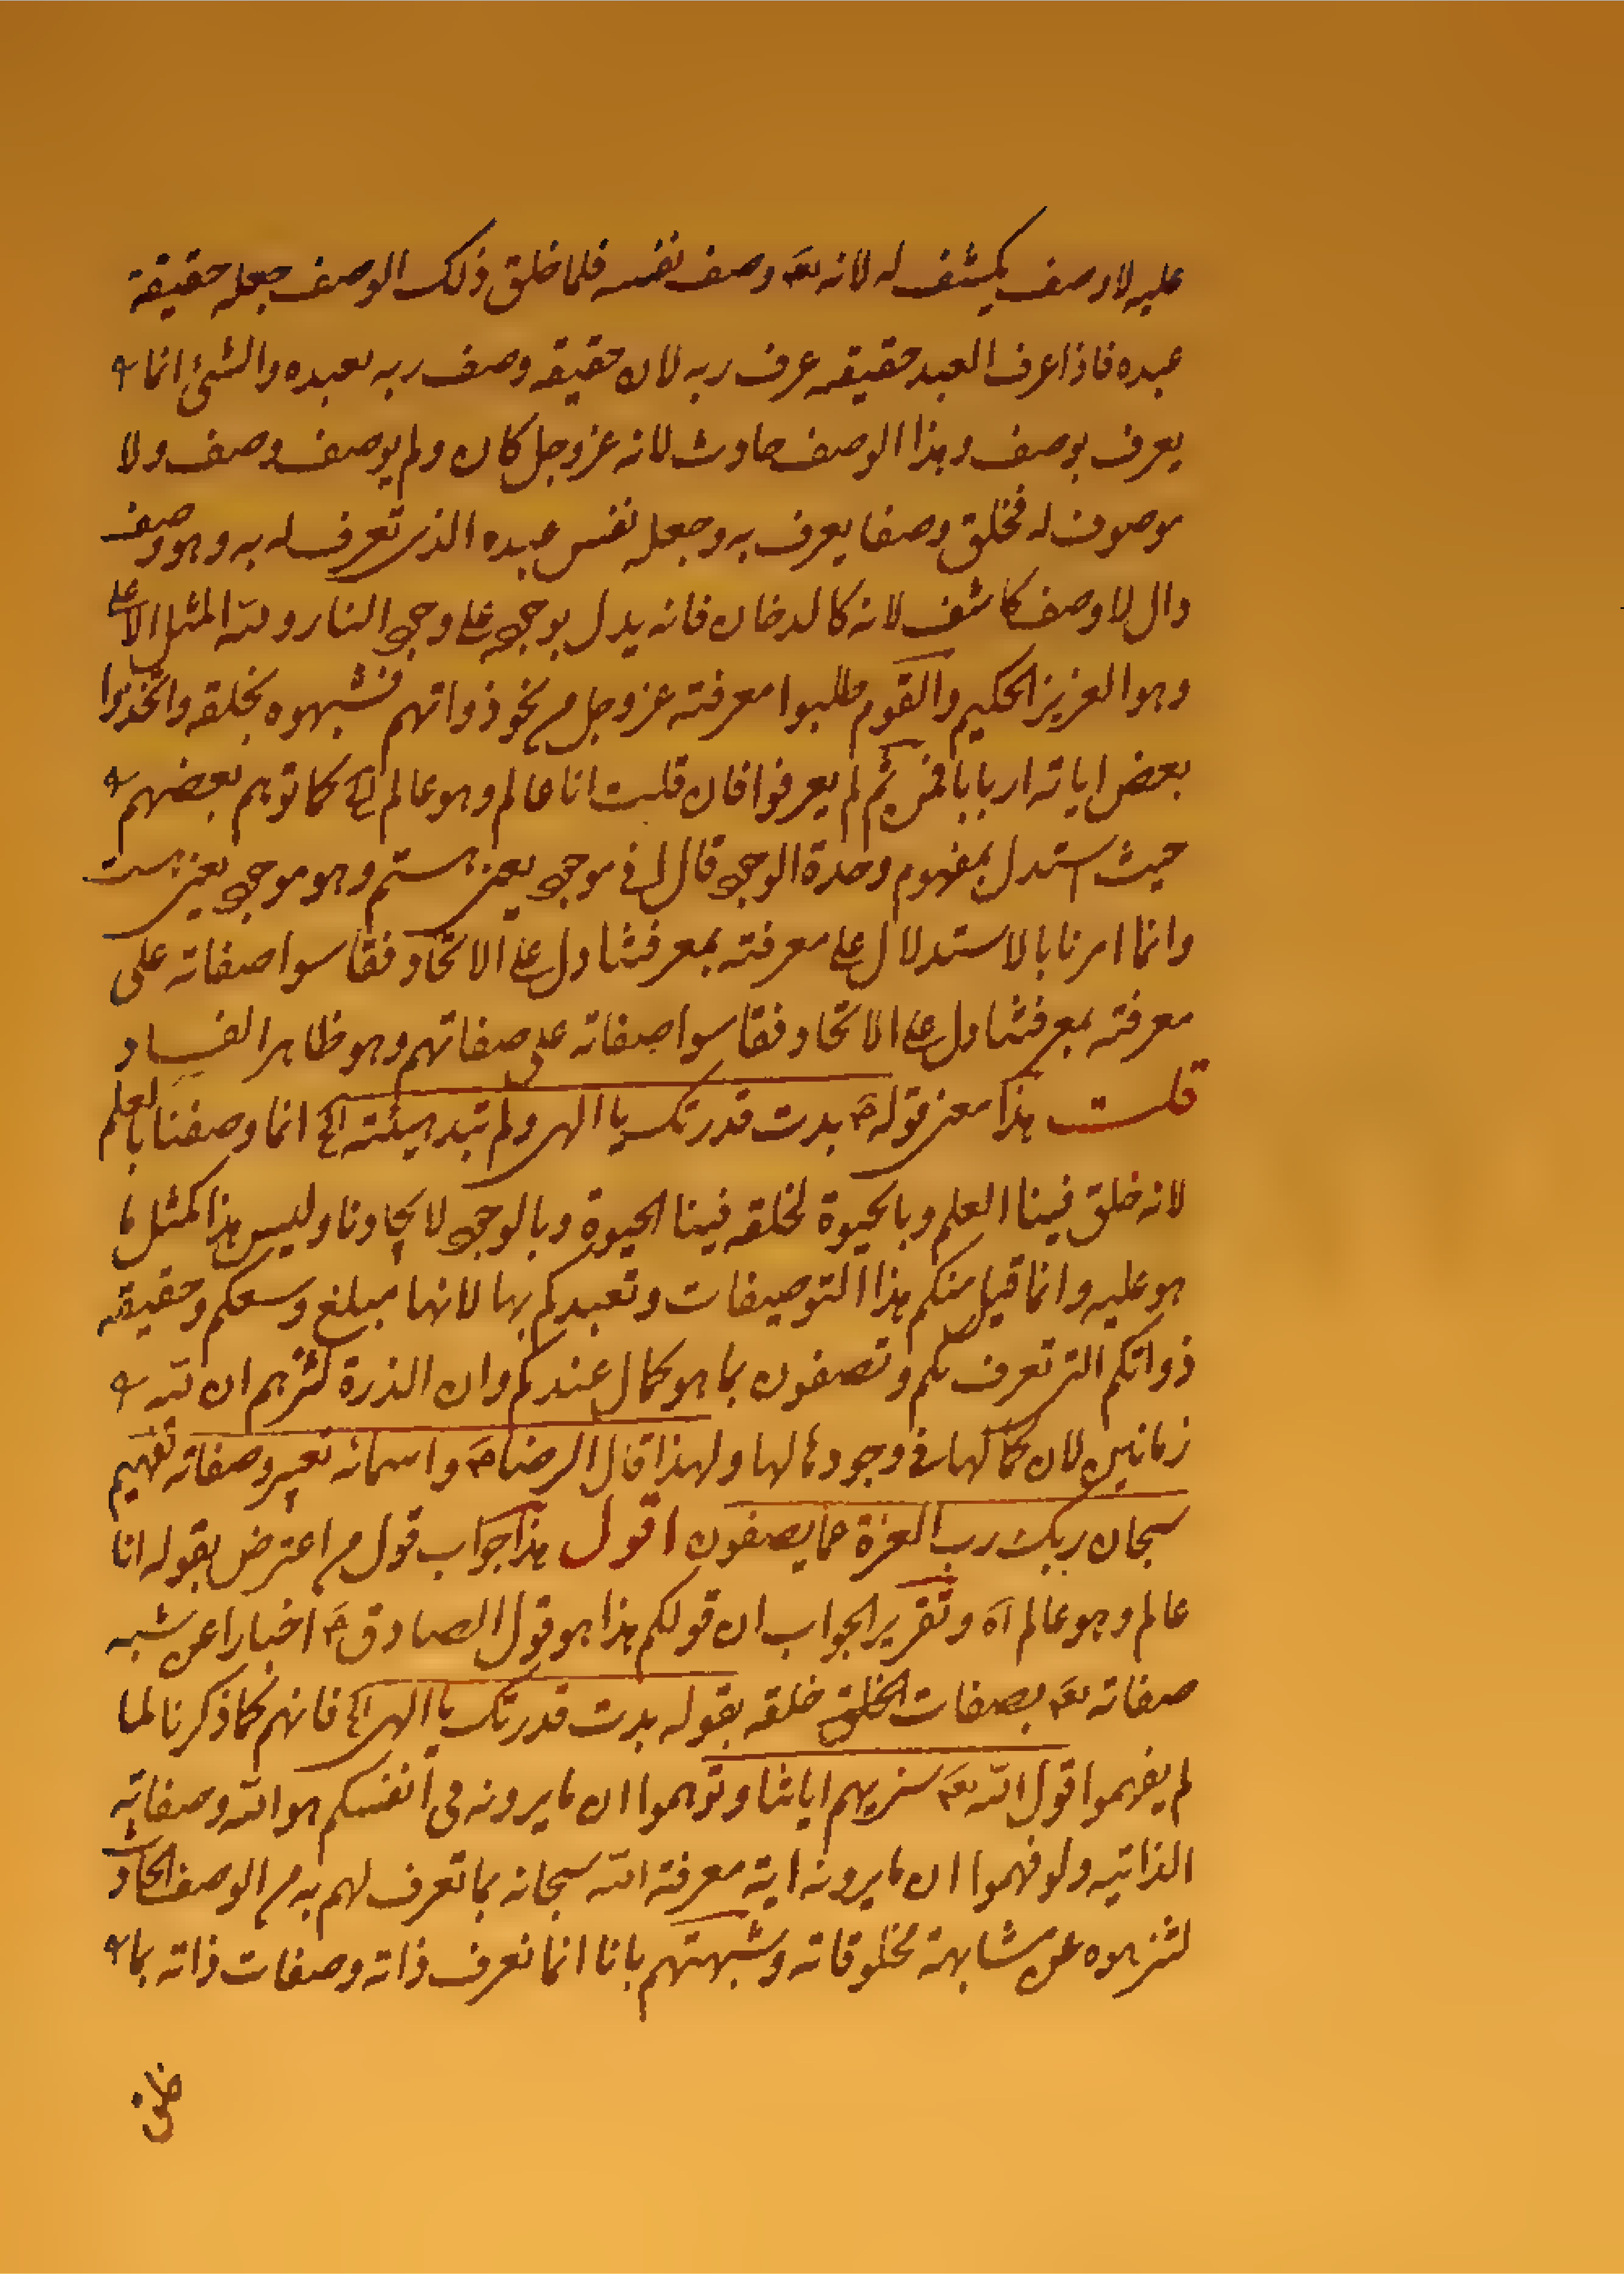 عليه لا وصف يكشف له لانه تعه وصف نفسه فلما خلق ذلك الوصف جعله حقيقة
عبده فاذا عرف العبد حقيقته عرف ربه لان حقيقته وصف ربه لعبده والشئ انما
يعرف بوصفه وهذا الوصف حادث لانه عز وجل كان ولم يوصف وصف ولا
موصوف له فخلق وصفا يعرف به وجعله نفس عبده الذى تعرف له به وهو وصف
دال لا وصف كاشف لانه كالدخان فانه يدل بوجوده على وجود النار ولله المثل الاعلى
وهو العزيز الحكيم والقوم طلبوا معرفته عز وجل من نحو ذواتهم فشبهوه بخلقه واتخذوا
بعض اياته اربابا فمن ثم لم يعرفوا فان قلت انا عالم وهو عالم الخ كما توهم بعضهم
حيث استدل بمفهوم وحدة الوجود قال انى موجود بمعنى هستم وهو موجود بمعنى هست
وانما امرنا بالاستدلال على معرفته بمعرفتنا دل على الاتحاد فقاسوا صفاته على
معرفته بمعرفتنا دل على الاتحاد فقاسوا صفاته على صفاتهم وهو ظاهر الفساد
قلت هذا معنى قوله ع بدت قدرتك يا الهى ولم تبد هيئته الخ انما وصفنا بالعلم
لانه خلق فينا العلم وبالحيوة لخلقه فينا الحيوة وبالوجود لايجادنا وليس هذا كمثل ما
هو عليه وانما قبل منكم هذا التوصيفات وتعبدكم بها لانها مبلغ وسعكم وحقيقة
ذواتكم التى تعرف لكم بكم وتصفون بما هو كمال عندكم وان الذرة لتزعم ان لله
زبانيين لان كمالها فى وجودهما لها ولهذا قال الرضا ع واسمائه تعبير وصفاته تفهيم
سبحان ربك رب العزة عما يصفون اقول هذا جواب قول من اعترض بقوله انا
عالم وهو عالم اه وتقرير الجواب ان قولكم هذا هو قول الصادق ع اخبارا عن شبه
صفاته تعه بصفات الخلق خلقه بقوله بدت قدرتك يا الهى الخ فانهم كما ذكرنا لما
لم يفهموا قول الله تعه سنريهم اياتنا وتوهموا ان ما يرونه فى انفسكم هو الله وصفاته
الذاتيه ولو فهموا ان ما يرونه اية معرفة الله سبحانه بما تعرف لهم به من الوصف الحادث
لنزهوه عن مشابهة مخلوقاته وشبهتهم بانا انما نعرف ذاته وصفات ذاته بما